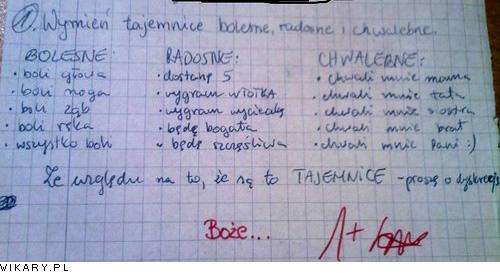 1. Wymień tajemnice bolesne, radosne i chwalebne.
BOLESNE: RADOSNE: CHWALEBNE:
• boli głowa • dostanę 5 • chwali mnie mama
• boli noga • wygram WIOTKA • chwali mnie tata
• boli ząb • wygram wycieczkę • chwali mnie siostra
• boli ręka • będę bogata • chwali mnie brat
• wszystko boli • będę szczęśliwa • chwali mnie Pani :)
Ze względu na to, że są to TAJEMNICE - proszę o dyskrecję
Boże... 1+
WIKARY.PL